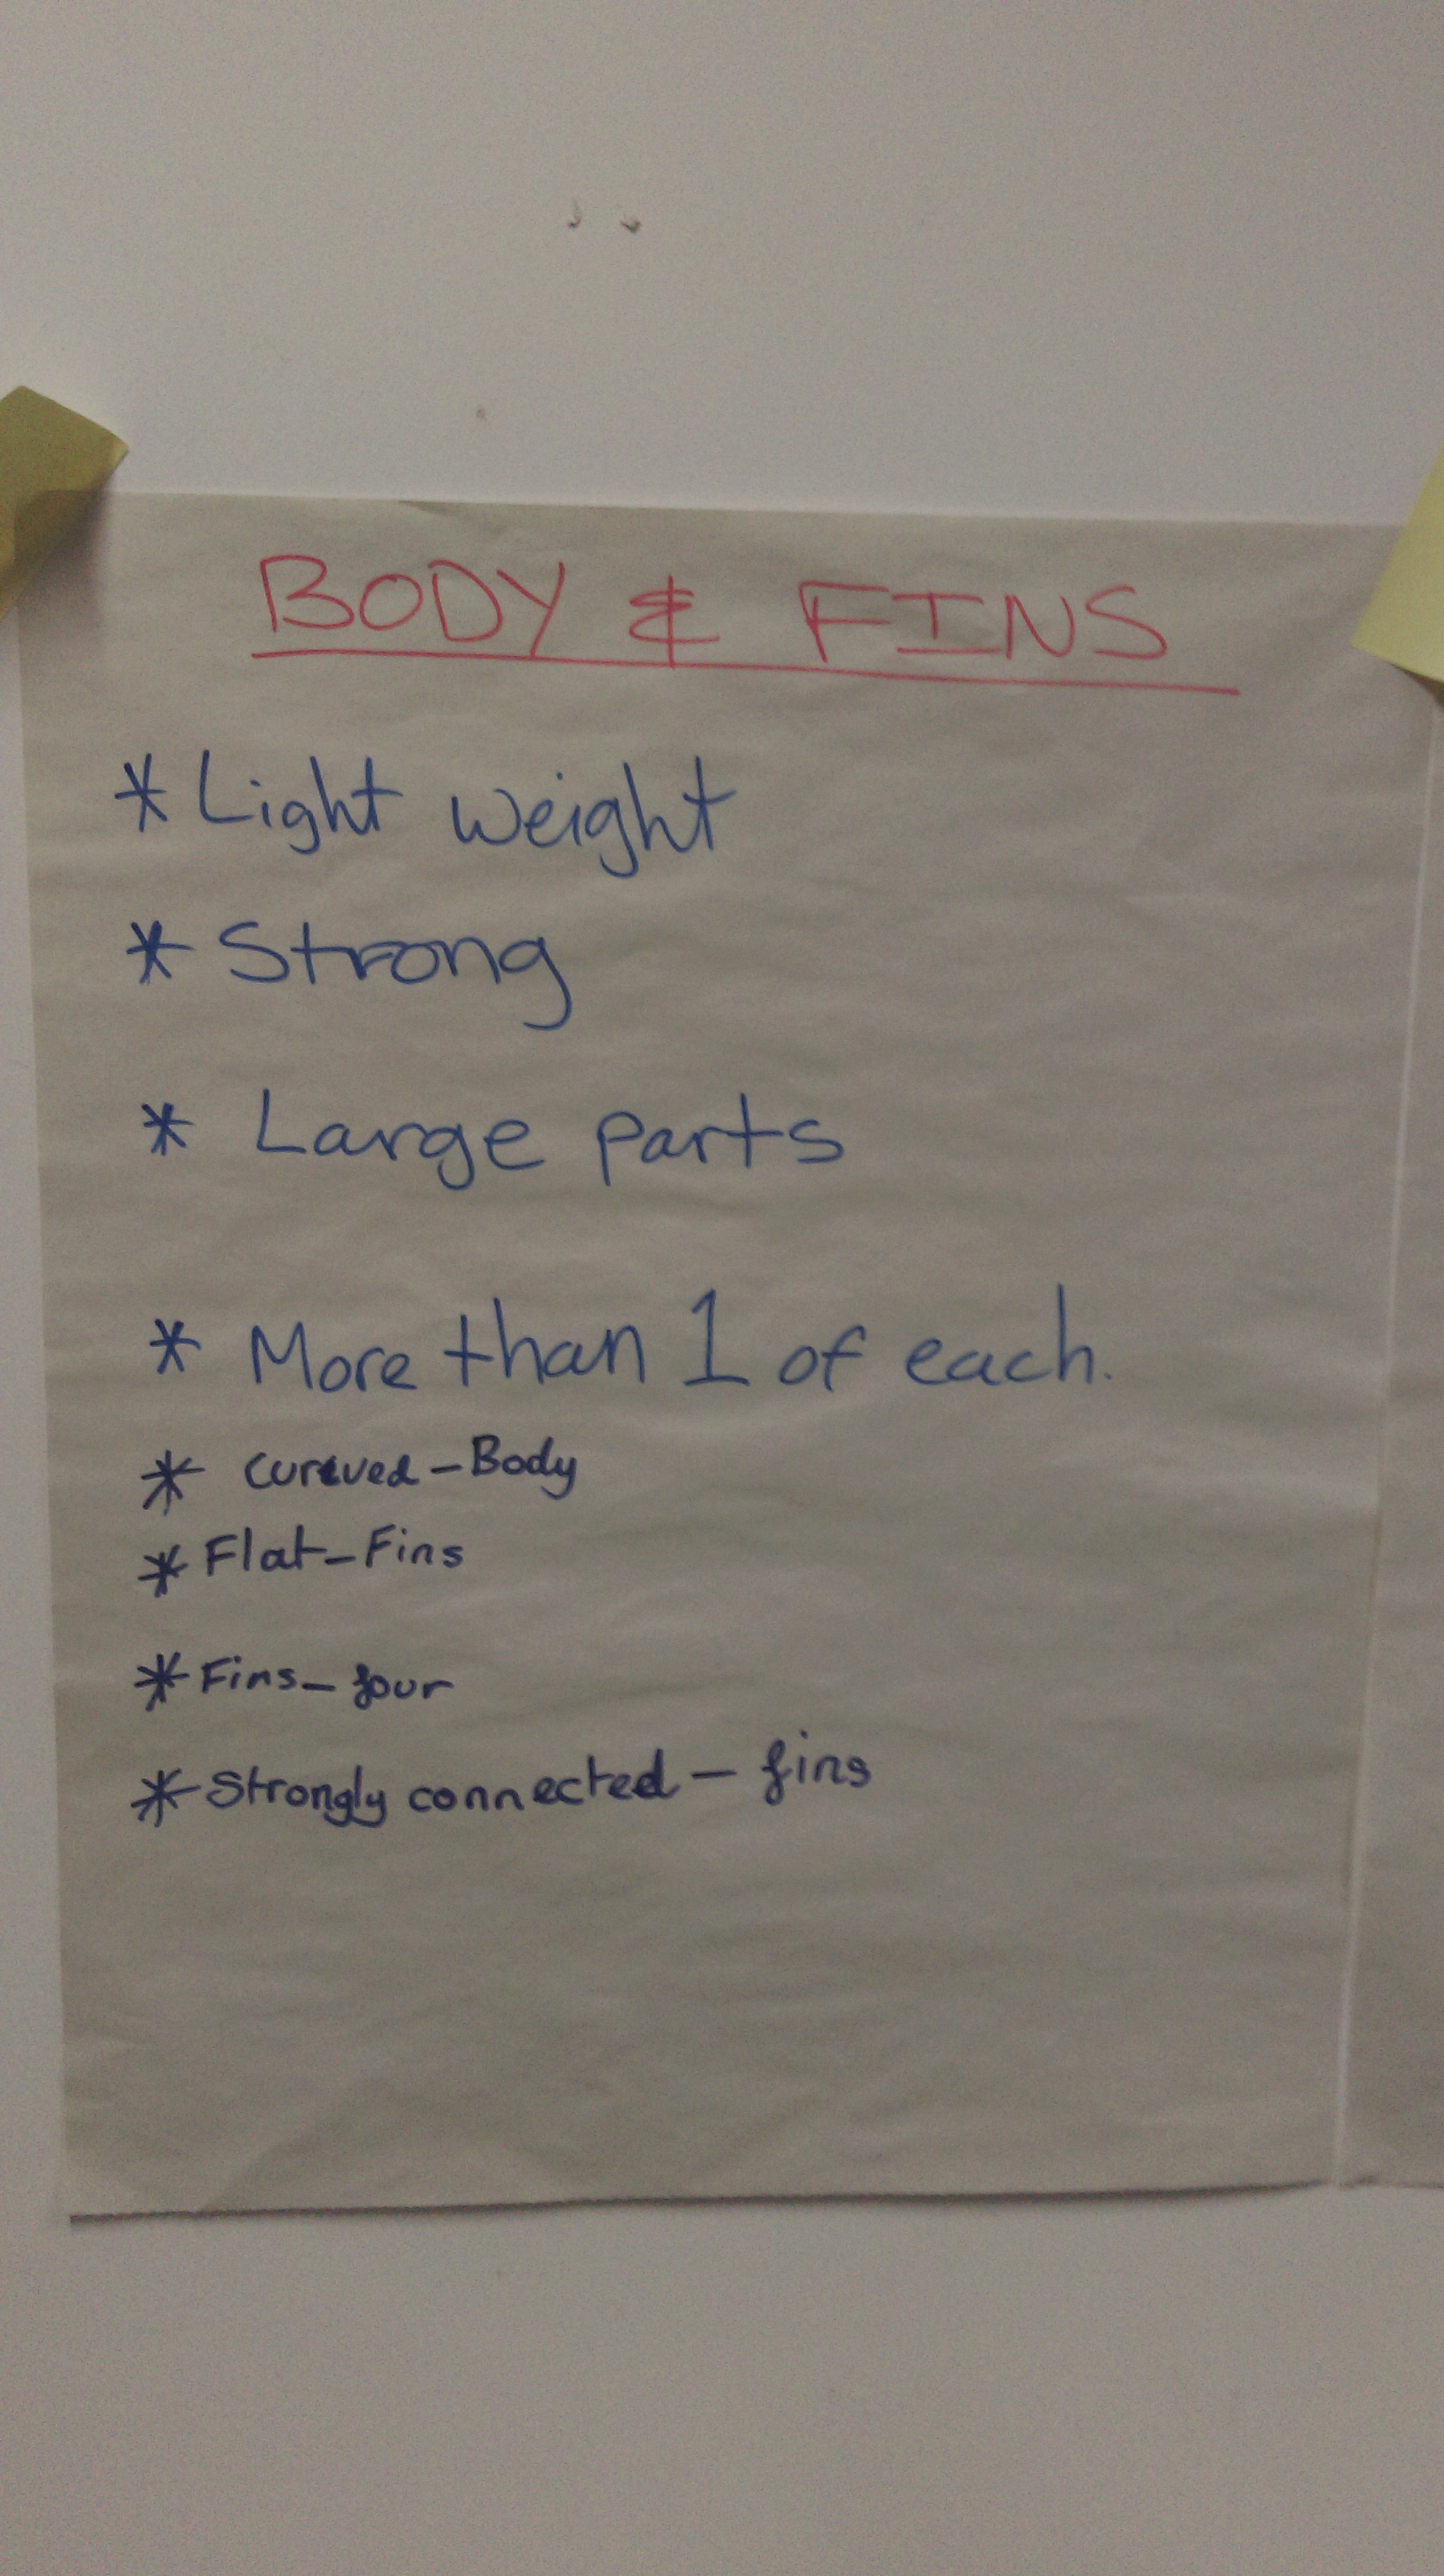 BODY & FINS
* Light weight
* Strong
* Large parts
* More than 1 of each.
* Curved - Body
* Flat - Fins
* Fins - four
* Strongly connected - fins